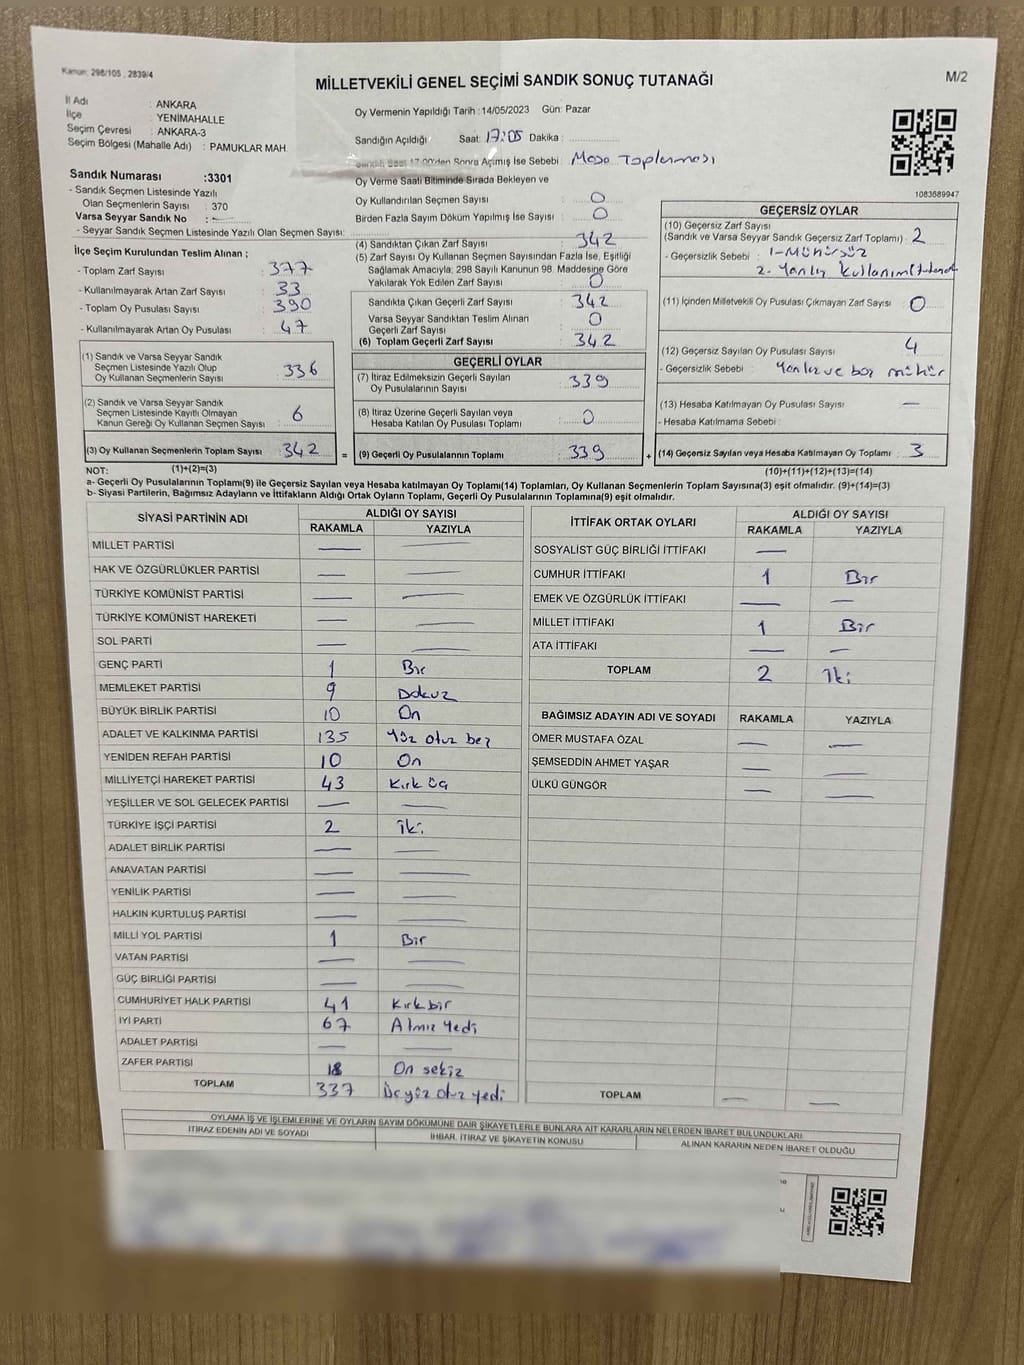 Kanun: 298/105 , 2839/4
MİLLETVEKİLİ GENEL SEÇİMİ SANDIK SONUÇ TUTANAĞI
M/2
İl Adı : ANKARA
İlçe : YENİMAHALLE
Seçim Çevresi : ANKARA-3
Seçim Bölgesi (Mahalle Adı) : PAMUKLAR MAH.
Oy Vermenin Yapıldığı Tarih : 14/05/2023 Gün: Pazar
Sandığın Açıldığı Saat: 17:05 Dakika :
Sandık Saat 17.00'den Sonra Açılmış İse Sebebi: Masa Toplanması
Oy Verme Saati Bitiminde Sırada Bekleyen ve
Oy Kullandırılan Seçmen Sayısı : 0
Birden Fazla Sayım Döküm Yapılmış İse Sayısı : 0
1083689947
Sandık Numarası :3301
- Sandık Seçmen Listesinde Yazılı
Olan Seçmenlerin Sayısı : 370
Varsa Seyyar Sandık No :
- Seyyar Sandık Seçmen Listesinde Yazılı Olan Seçmen Sayısı:
İlçe Seçim Kurulundan Teslim Alınan ;
- Toplam Zarf Sayısı : 377
- Kullanılmayarak Artan Zarf Sayısı : 33
- Toplam Oy Pusulası Sayısı : 390
- Kullanılmayarak Artan Oy Pusulası : 47
(1) Sandık ve Varsa Seyyar Sandık
Seçmen Listesinde Yazılı Olup
Oy Kullanan Seçmenlerin Sayısı : 336
(2) Sandık ve Varsa Seyyar Sandık
Seçmen Listesinde Kayıtlı Olmayan
Kanun Gereği Oy Kullanan Seçmen Sayısı : 6
(3) Oy Kullanan Seçmenlerin Toplam Sayısı : 342 =
(4) Sandıktan Çıkan Zarf Sayısı : 342
(5) Zarf Sayısı Oy Kullanan Seçmen Sayısından Fazla İse, Eşitliği
Sağlamak Amacıyla, 298 Sayılı Kanunun 98. Maddesine Göre
Yakılarak Yok Edilen Zarf Sayısı : 0
Sandıkta Çıkan Geçerli Zarf Sayısı : 342
Varsa Seyyar Sandıktan Teslim Alınan
Geçerli Zarf Sayısı : 0
(6) Toplam Geçerli Zarf Sayısı : 342
GEÇERLİ OYLAR
(7) İtiraz Edilmeksizin Geçerli Sayılan
Oy Pusulalarının Sayısı : 339
(8) İtiraz Üzerine Geçerli Sayılan veya
Hesaba Katılan Oy Pusulası Toplamı : 0
(9) Geçerli Oy Pusulalarının Toplamı : 339 +
GEÇERSİZ OYLAR
(10) Geçersiz Zarf Sayısı
(Sandık ve Varsa Seyyar Sandık Geçersiz Zarf Toplamı) : 2
- Geçersizlik Sebebi : 1-Mühürsüz
2- Yanlış kullanım(tutanak
(11) İçinden Milletvekili Oy Pusulası Çıkmayan Zarf Sayısı : 0
(12) Geçersiz Sayılan Oy Pusulası Sayısı : 4
- Geçersizlik Sebebi : Yanlış ve boş mühür
(13) Hesaba Katılmayan Oy Pusulası Sayısı : —
- Hesaba Katılmama Sebebi :
(14) Geçersiz Sayılan veya Hesaba Katılmayan Oy Toplamı : 3
NOT: (1)+(2)=(3)
(10)+(11)+(12)+(13)=(14)
a- Geçerli Oy Pusulasının Toplamı(9) ile Geçersiz Sayılan veya Hesaba katılmayan Oy Toplamı(14) Toplamları, Oy Kullanan Seçmenlerin Toplam Sayısına(3) eşit olmalıdır. (9)+(14)=(3)
b- Siyasi Partilerin, Bağımsız Adayların ve İttifakların Aldığı Ortak Oyların Toplamı, Geçerli Oy Pusulalarının Toplamına(9) eşit olmalıdır.
SİYASİ PARTİNİN ADI ALDIĞI OY SAYISI
RAKAMLA YAZIYLA
MİLLET PARTİSİ — —
HAK VE ÖZGÜRLÜKLER PARTİSİ — —
TÜRKİYE KOMÜNİST PARTİSİ — —
TÜRKİYE KOMÜNİST HAREKETİ — —
SOL PARTİ — —
GENÇ PARTİ 1 Bir
MEMLEKET PARTİSİ 9 Dokuz
BÜYÜK BİRLİK PARTİSİ 10 On
ADALET VE KALKINMA PARTİSİ 135 Yüz otuz beş
YENİDEN REFAH PARTİSİ 10 On
MİLLİYETÇİ HAREKET PARTİSİ 43 Kırk üç
YEŞİLLER VE SOL GELECEK PARTİSİ — —
TÜRKİYE İŞÇİ PARTİSİ 2 İki
ADALET BİRLİK PARTİSİ — —
ANAVATAN PARTİSİ — —
YENİLİK PARTİSİ — —
HALKIN KURTULUŞ PARTİSİ — —
MİLLİ YOL PARTİSİ 1 Bir
VATAN PARTİSİ — —
GÜÇ BİRLİĞİ PARTİSİ — —
CUMHURİYET HALK PARTİSİ 41 Kırk bir
İYİ PARTİ 67 Atmış Yedi
ADALET PARTİSİ — —
ZAFER PARTİSİ 18 On sekiz
TOPLAM 337 Üçyüz otuz yedi
İTTİFAK ORTAK OYLARI ALDIĞI OY SAYISI
RAKAMLA YAZIYLA
SOSYALİST GÜÇ BİRLİĞİ İTTİFAKI —
CUMHUR İTTİFAKI 1 Bir
EMEK VE ÖZGÜRLÜK İTTİFAKI — —
MİLLET İTTİFAKI 1 Bir
ATA İTTİFAKI — —
TOPLAM 2 İki
BAĞIMSIZ ADAYIN ADI VE SOYADI RAKAMLA YAZIYLA
ÖMER MUSTAFA ÖZAL — —
ŞEMSEDDİN AHMET YAŞAR — —
ÜLKÜ GÜNGÖR — —
TOPLAM — —
OYLAMA İŞ VE İŞLEMLERİNE VE OYLARIN SAYIM DÖKÜMÜNE DAİR ŞİKAYETLERLE BUNLARA AİT KARARLARIN NELERDEN İBARET BULUNDUKLARI
İTİRAZ EDENİN ADI VE SOYADI İHBAR, İTİRAZ VE ŞİKAYETİN KONUSU ALINAN KARARIN NEDEN İBARET OLDUĞU